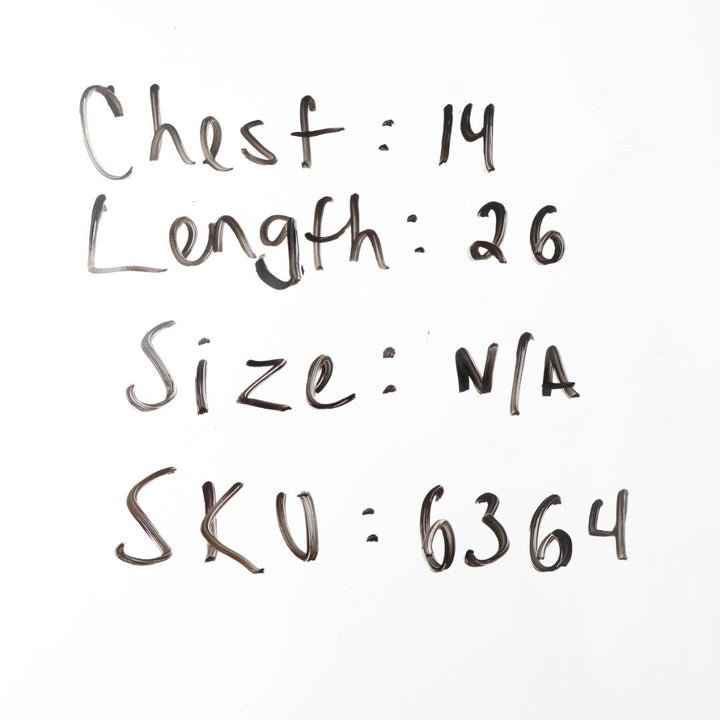 Chest: 14
Length: 26
Size: N/A
SKU: 6364